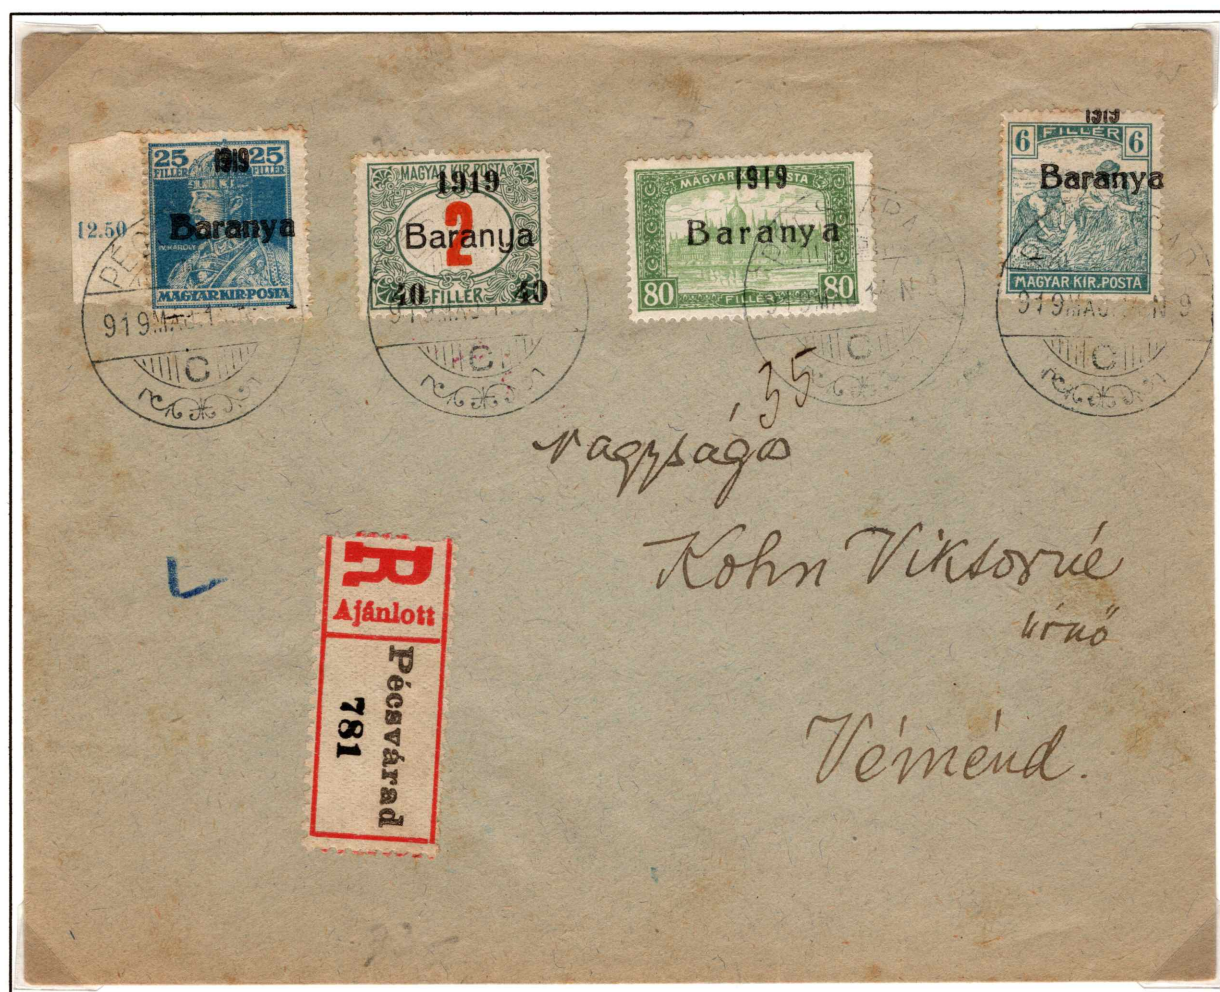 25 FILLÉR 1919 25 FILLÉR
Baranya
IV. KÁROLY
MAGYAR KIR. POSTA
12.50
MAGYAR KIR. POSTA
1919
2
Baranya
40 FILLÉR 40
MAGYAR KIR. POSTA
1919
Baranya
80 FILLÉR 80
1919
6 FILLÉR 6
Baranya
MAGYAR KIR. POSTA
919 MÁJ. 1
C
919 MÁJ. 1
C
C
919 MÁJ. N 9
C
35
Nagyságos
Kohn Viktorné
úrnő
Véménd.
R
Ajánlott
Pécsvárad
781